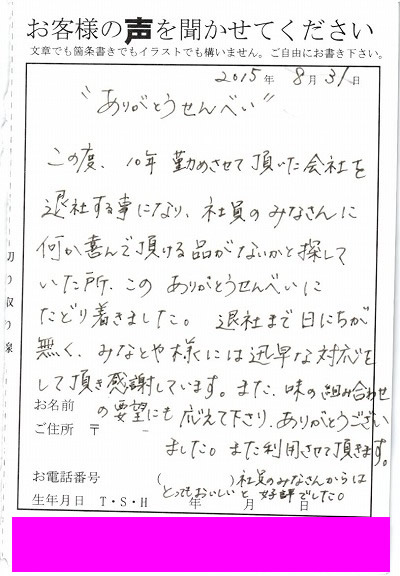 お客様の声を聞かせてください
文章でも箇条書きでもイラストでも構いません。ご自由にお書き下さい。
2015年 8月31日
"ありがとうせんべい"
この度、10年勤めさせて頂いた会社を
退社する事になり、社員のみなさんに
何か喜んで頂ける品がないかと探して
いた所、この ありがとうせんべいに
たどり着きました。 退社まで日にちが
無く、みなとや様には迅速な対応を
して頂き感謝しています。また、味の組み合わせ
の要望にも応えて下さり、ありがとうござい
ました。また利用させて頂きます。
(社員のみなさんからは
とってもおいしいと好評でした。)
お名前
ご住所 〒 －
お電話番号
生年月日 T・S・H 年 月 日
切り取り線